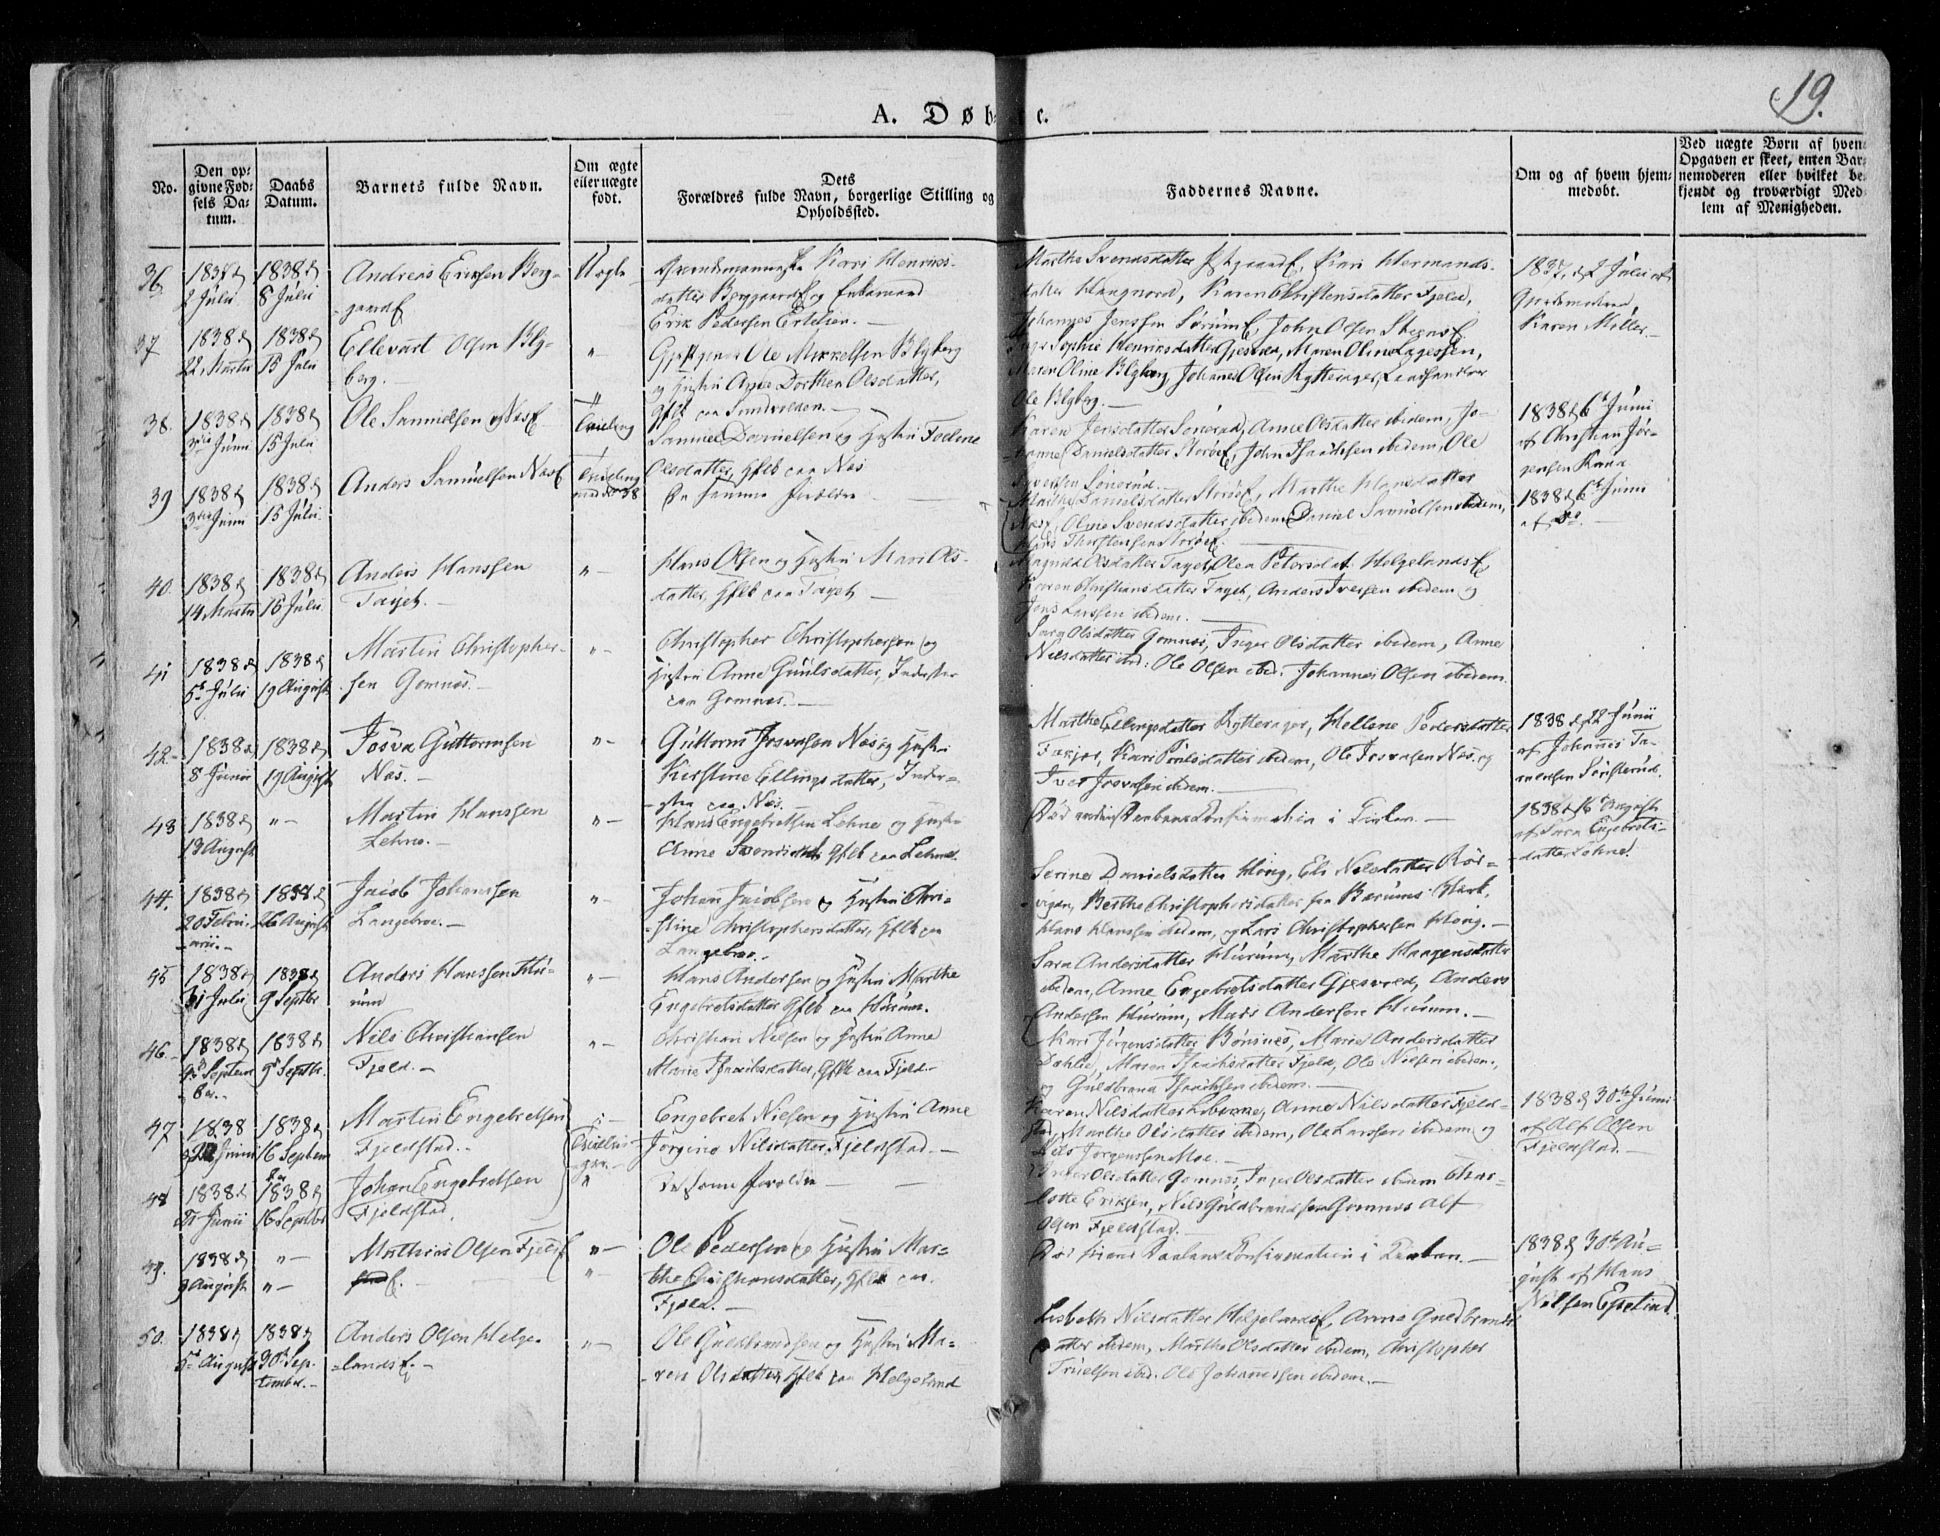 19.
A. Døbte.
No.
Den op-
givne Fød-
sels Da-
tum.
Daabs
Datum.
Barnets fulde Navn.
Om ægte
eller uægte
født.
Dets
Forældres fulde Navn, borgerlige Stilling og
Opholdssted.
Faddernes Navne.
Om og af hvem hjem-
medøbt.
Ved uægte Børn af hvem
Opgaven er skeet, enten Bar-
nemoderen eller hvilket be-
kjendt og troværdigt Med-
lem af Menigheden.
36
2 Juli
1838
8 Julii
Andreas Eriksen Berg-
gaard
Kari Henriks-
datter Berggaard og Enkemand
Erik Pedersen
Marthe Svendsdatter, Kari Hermands-
datter, Karen Christensdatter Fjeld,
Johannes Jenssen Sørum, John Olsen
1837, d 2 Julii af
Karen Møller
37
1838
22 Martii
1838
15 Juli
Ellevart Olsen Bly-
berg.
"
Ole Mikkelsen Blyberg
og Hustru Anne Dorthea Olsdatter,
Gflk paa Sundvolden.
Sophie Henriksdatter, Maren Oline
Maren Oline Blyberg, Johannes Olsen Rytterager, Landhandler
Ole Blyberg.
38.
1838
Junii
1838
15 Juli
Ole Samuelsen Næs
Tvilling
Samuel Danielsen og Hustru
Olsdatter, Gflk paa Næs
Karen Jensdatter Sønerud, Anne Olsdatter ibidem, Jo-
hanne Danielsdatter Storøe, John Isachsen ibidem, Ole
Iversen Sønerud.
1838 d 6 Junii
af Christian Jør-
gensen
39
1838
Junii
1838
15 Julii
Anders Samuelsen Næs
Tvilling
med No 38
De samme Forældre
Marthe Danielsdatter Storøe, Marthe Hansdatter
Næs, Oline Svendsdatter ibidem, Daniel Samuelsen ibidem,
Hans Thorstensen Storøe.
1838 d 6 Junii
af Do.
40.
1838
14 Martii
1838
15 Julii
Anders Hanssen
"
Hans Olsen og Hustru Mari Ols-
datter, Gflk paa
Olsdatter, Olea Petersdat. Helgeland
Karen Christiansdatter, Anders Iversen ibidem og
Jens Larssen ibidem.
41
1838
5 Julii
1838
19 August
Martin Christopher-
sen Gomnæs.
"
Christopher Christophersen og
Hustru Anne Guulsdatter, Inderster
paa Gomnæs.
Sara Olsdatter Gomnæs, Inger Olsdatter ibidem, Anne
Nilsdatter ibid: Ole Olsen ibid: Johannes Olsen ibidem
42
1838
8 Junii
1838
19 August
Josva Guttormsen
Næs.
"
Guttorm Josvasen Næs og Hustru
Kirstine Ellingsdatter, Inder-
ster paa Næs.
Marthe Ellingsdatter Rytterager, Hellene Pedersdatter
Kari Poulsdatter ibidem, Ole Josvasen Næs og
Iver Josvasen ibidem.
1838 d 22 Junii
af Johannes
Sønsterud.
43
1838
13 August
"
Martin Hanssen
Lehne.
"
Hans Engebretsen Lehne og Hustru
Anne Svendsdatter Gflk paa Lehne
Død inden Daabens Confirmation i Kirken.
1838 d 16 August
af Sara Engebrets-
datter Lehne.
44.
1838
20 Febru-
arii.
1838
26 August
Jacob Johanssen
Langebroe.
"
Johan Jacobsen og Hustru Chri-
stine Christophersdatter, Gflk paa
Langebroe.
Serine Danielsdatter Høng, Eli Nilsdatter Rør-
vigen, Berthe Christophersdatter fra Bærums Værk,
Hans Hanssen ibidem, og Lars Christophersen Høng.
45
1838
31 Julii
1838
9 Septbr
Anders Hanssen Hu-
rum
"
Hans Andersen og Hustru Marthe
Engebretsdatter Gflk paa Hurum.
Sara Andersdatter Hurum, Marthe Haagensdatter
ibidem, Anne Engebretsdatter Gjesvold, Anders
Andersen Hurum, Mads Andersen Hurum.
46.
1838
Septem-
ber.
1838
9 Septbr.
Nils Christiansen
Fjeld.
"
Christian Nilsen og Hustru Anne
Marie Isachsdatter, Gflk paa Fjeld.
Kari Jørgensdatter Bønsnæs, Marie Andersdatter
Maren Isachsdatter Fjeld, Ole Nilsen ibidem,
og Guldbrand Isachsen ibidem.
47
1838
Junii
1838
16 Septem
ber
Martin Engebretsen
Fjeldstad.
Tvillin-
ger.
Engebret Nilsen og Hustru Anne
Jørgine Nilsdatter Fjeldstad.
Karen Nilsdatter, Anne Nilsdatter Fjeld-
stad, Marthe Olsdatter ibidem, Ole Larssen ibidem og
Nils Jørgenssen Moe.
1838 d 30te Junii
af Alf Olsen
Fjeldstad.
48
1838
Junii
1838
16 Septbr
Johan Engebretsen
Fjeldstad.
"
De samme Forældre
Olsdatter Gomnæs, Inger Olsdatter ibidem Char-
lotte Eriksen, Nils Guldbrandsen Gomnæs Alf
Olsen Fjeldstad.
39.
1838
9 August
"
"
Mathias Olsen Fjeld
"
"
Ole Pedersen og Hustru Mar-
the Christiansdatter, Gflk paa
Fjeld.
Død inden Daabens Confirmation i Kirken.
1838 d 30te Au-
gust af Hans
Nilsen
50.
1838
5 August
1838
30 Sep-
tember.
Anders Olsen Helge-
land.
"
Ole Guldbrandsen og Hustru Ma-
ren Olsdatter, Gflk paa Helgeland
Lisbeth Nilsdatter Helgeland, Anne Guldbrands-
datter ibidem, Marthe Olsdatter ibidem, Christopher
Truelsen ibid. Ole Johannessen ibidem.